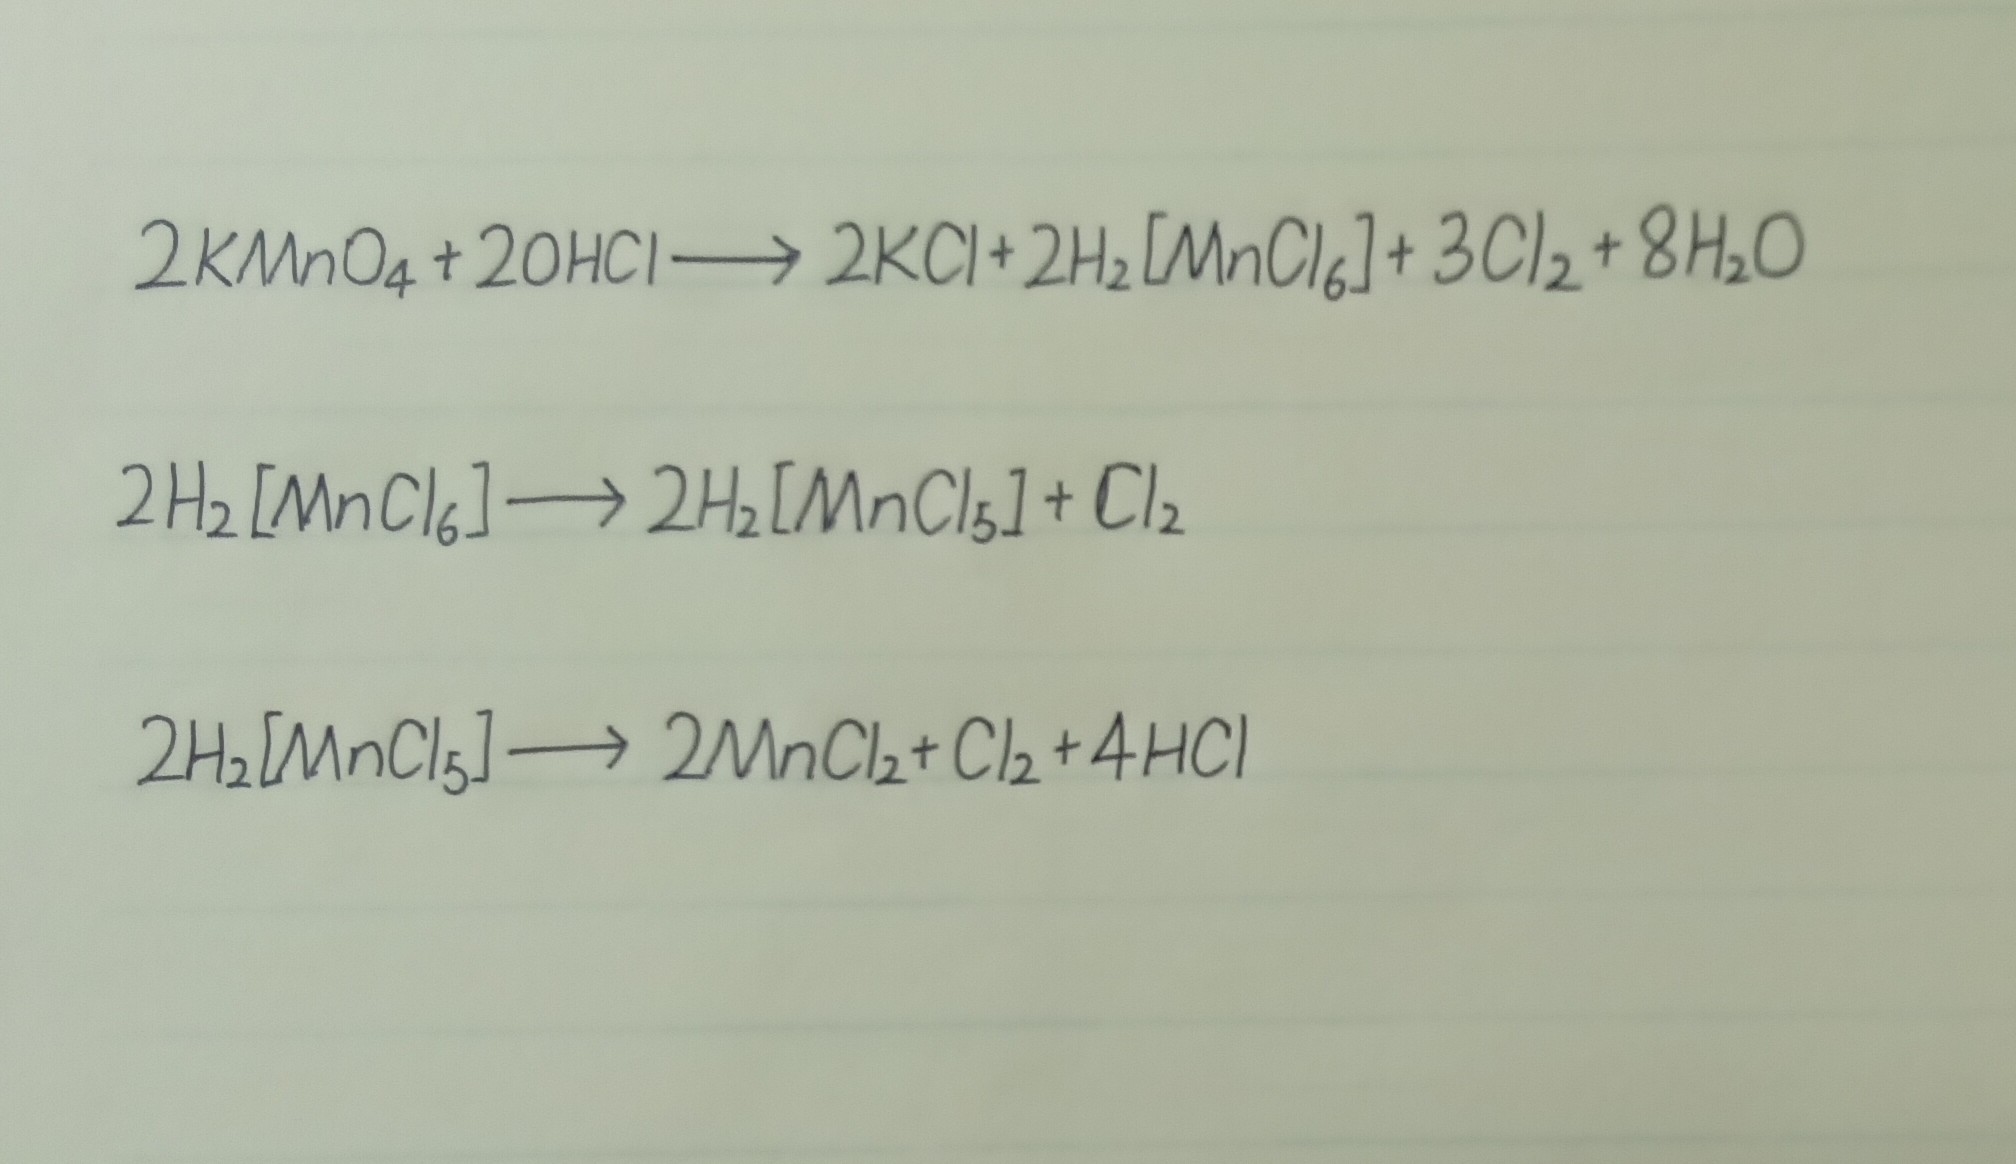 2KMnO₄ + 20HCl ⟶ 2KCl + 2H₂[MnCl₆] + 3Cl₂ + 8H₂O
2H₂[MnCl₆] ⟶ 2H₂[MnCl₅] + Cl₂
2H₂[MnCl₅] ⟶ 2MnCl₂ + Cl₂ + 4HCl